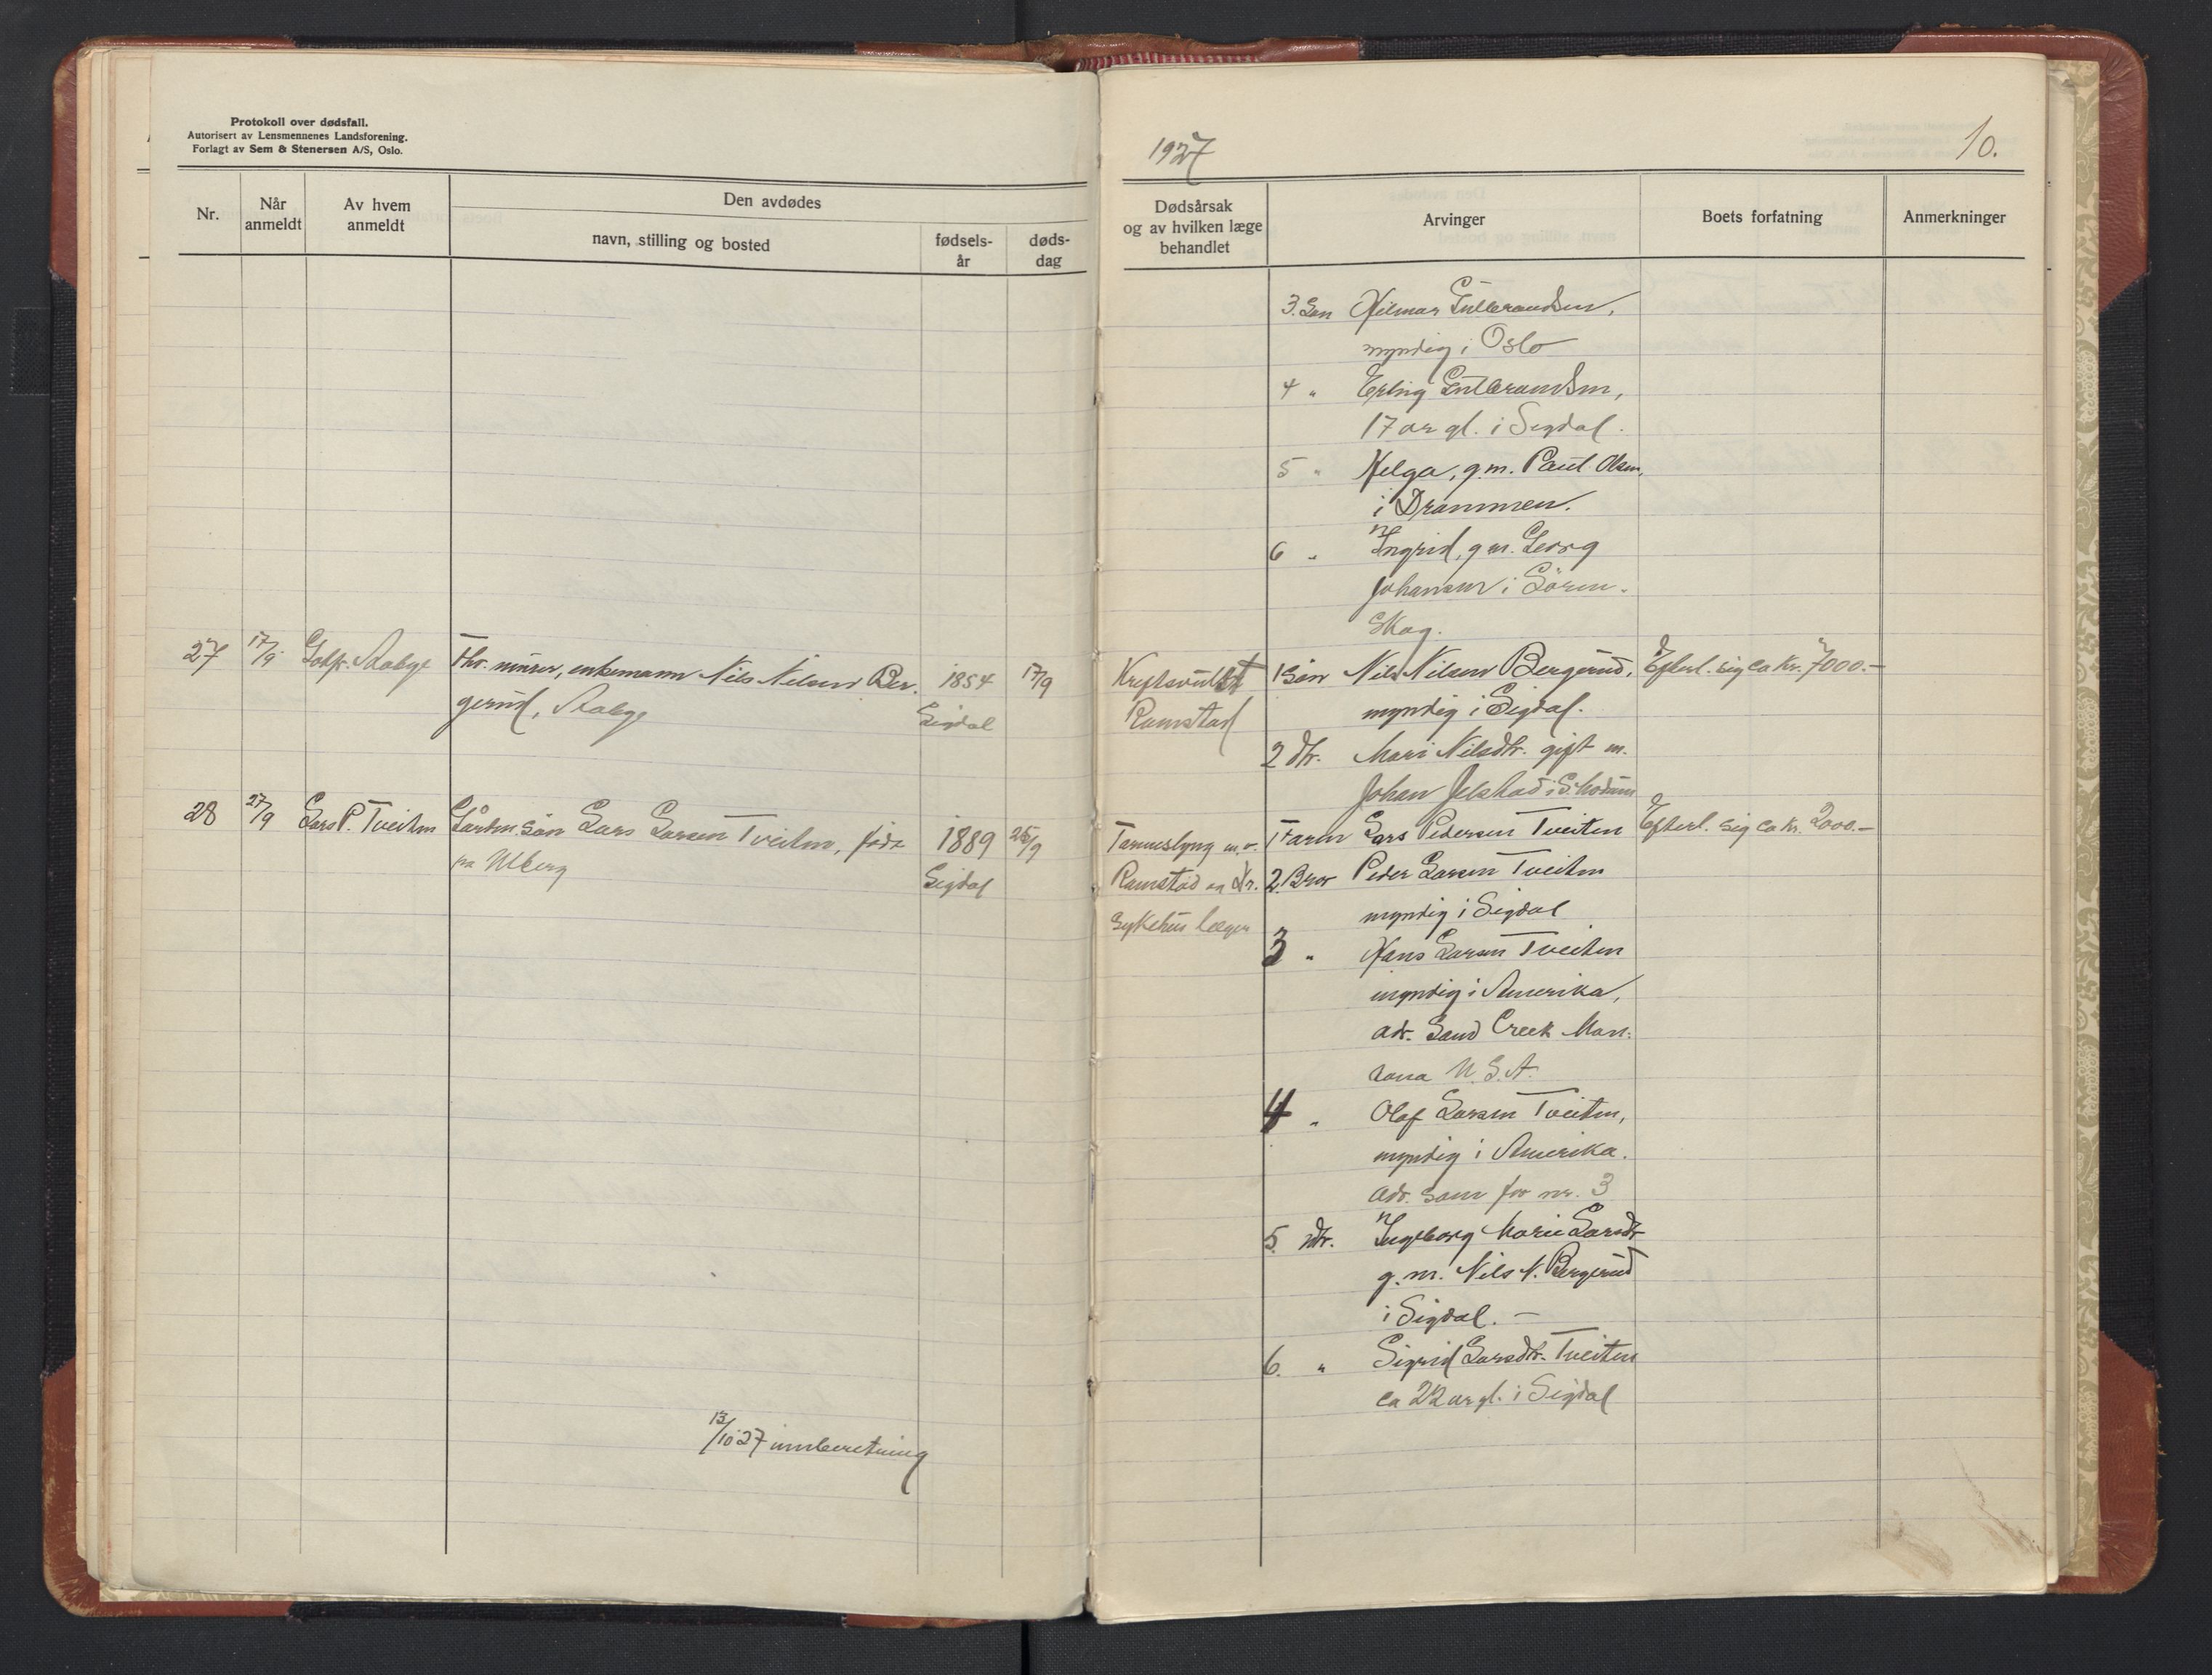 Protokoll over dødsfall.
Autorisert av Lensmennenes Landsforening.
Forlagt av Sem & Stenersen A/S, Oslo.
Nr.
Når anmeldt
Av hvem anmeldt
Den avdødes
navn, stilling og bosted
fødsels-år
døds-dag
27 17/9 Aabye Fhv. murer, enkemann Nils Nilsen Ber- 1854 17/9
gerud, Aabye Sigdal
28 27/9 Lars P. Tveiten Gårdm. søn Lars Larsen Tveiten, født 1889 25/9
på Ulberg Sigdal
13/10 27 innberetning
1927
10.
Dødsårsak
og av hvilken læge
behandlet
Arvinger
Boets forfatning
Anmerkninger
3. Søn Hilmar Gulbrandsen,
myndig i Oslo
4 " Erling Gulbrandsen,
17 år gl. i Sigdal.
5 " Helga, g.m. Paul Olsen,
i Drammen.
6 " Ingrid, g.m. Georg
Johansen i Sören-
skog.
Kreftsvulst 1 Søn Nils Nilsen Bergerud, Efterl. sig ca kr. 7000.-
Ramstad myndig i Sigdal.
2 dtr. Mari Nilsdtr. gift m.
Johan Jelstad i S. Modum
Tarmslyng m.v. 1 Faren Lars Pedersen Tveiten Efterl. sig ca kr. 2000.-
Ramstad og Dr. 2. Bror Peder Larsen Tveiten
sykehus læger myndig i Sigdal
3 " Hans Larsen Tveiten
myndig i Amerika,
adr. Sand Creek Mon-
tana U.S.A.
4 " Olaf Larsen Tveiten,
myndig i Amerika.
adr. som for nr. 3
5. dtr. Ingeborg Marie Larsdtr
g.m. Nils N. Bergerud
i Sigdal. -
6. " Sigrid Larsdtr. Tveiten
ca 22 år gl. i Sigdal